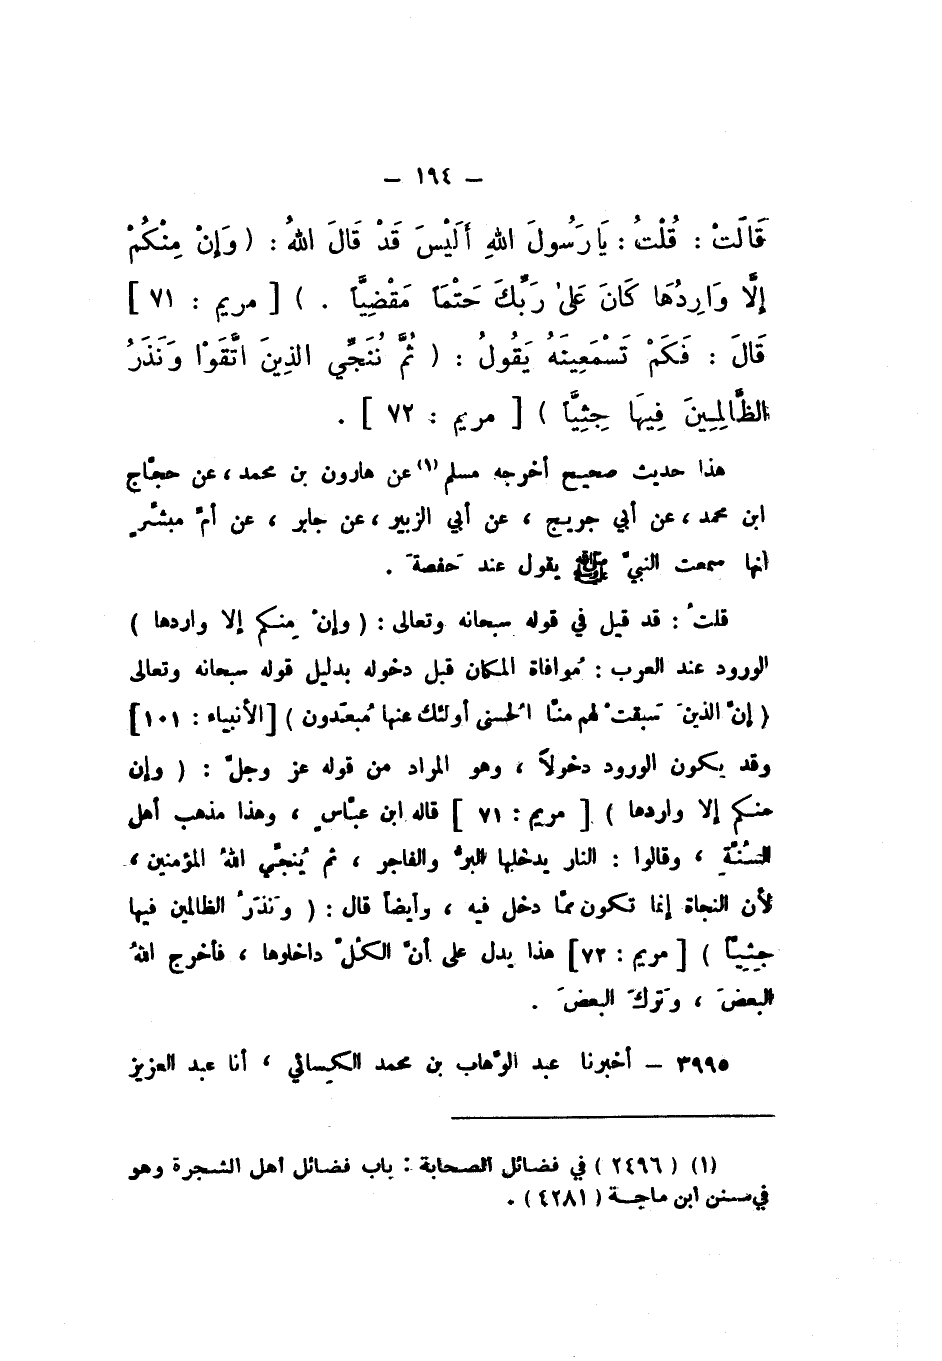 – ١٩٤ –
قَالَتْ : قُلْتُ : يَا رَسُولَ اللهِ أَلَيْسَ قَدْ قَالَ اللهُ : ( وَإِنْ مِنْكُمْ
إِلَّا وَارِدُهَا كَانَ عَلَى رَبِّكَ حَتْمًا مَقْضِيًّا . ) [ مريم : ٧١ ]
قَالَ : فَكَمْ تَسْمَعِينَهُ يَقُولُ : ( ثُمَّ نُنَجِّي الذِينَ اتَّقَوْا وَنَذَرُ
الظَّالِمِينَ فِيهَا جِثِيًّا ) [ مريم : ٧٢ ] .
هذا حديث صحيح أخرجه مسلم (١) عن هارون بن محمد ، عن حجّاج
ابن محمد ، عن أبي جريج ، عن أبي الزبير ، عن جابر ، عن أمّ مبشّرٍ
أنها سمعت النبيّ ﷺ يقول عند حَفصةَ .
قلتُ : قد قيل في قوله سبحانه وتعالى : ( وإنْ مِنكم إلا واردها )
الورود عند العرب : مُوافاة المكان قبل دخوله بدليل قوله سبحانه وتعالى
( إنّ الذينَ سَبقتْ لهم منّا الحُسنى أولئك عنها مُبعَدون ) [الأنبياء : ١٠١]
وقد يكون الورود دخولاً ، وهو المراد من قوله عز وجلّ : ( وإن
منكم إلا واردها ) [ مريم : ٧١ ] قاله ابن عبّاسٍ ، وهذا مذهب أهل
السُنَّةِ ، وقالوا : النار يدخلها البرُّ والفاجر ، ثم يُنجّي اللهُ المؤمنين ،
لأن النجاة إنما تكون ممّا دخل فيه ، وأيضاً قال : ( ونَذَرُ الظالمين فيها
جِثِيّاً ) [ مريم : ٧٢] هذا يدل على أنّ الكلّ داخلوها ، فأخرج اللهُ
البعضَ ، وتَركَ البعضَ .
٣٩٩٥ – أخبرنا عبد الوّهاب بن محمد الكيسائي ، أنا عبد العزيز
(١) ( ٢٤٩٦ ) في فضائل الصحابة : باب فضائل أهل الشجرة وهو
في سنن ابن ماجة ( ٤٢٨١ ) .